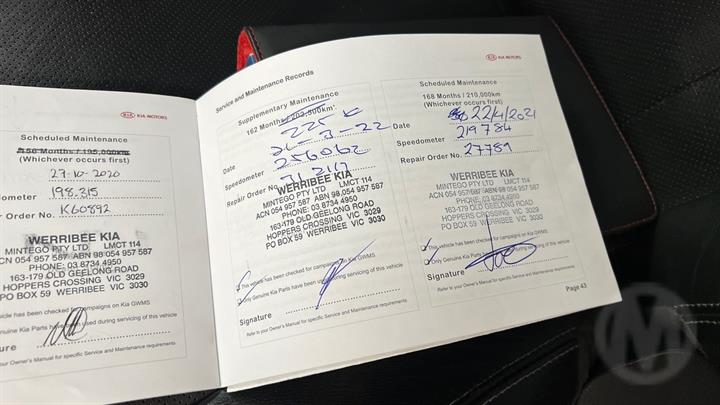 KIA MOTORS
Scheduled Maintenance
156 Months / 195,000km
(Whichever occurs first)
27-10-2020
ometer 198,315
r Order No. K60892
WERRIBEE KIA
MINTEGO PTY LTD LMCT 114
ACN 054 957 587 ABN 98 054 957 587
PHONE: 03 8734 4950
163-179 OLD GEELONG ROAD
HOPPERS CROSSING VIC 3029
PO BOX 59 WERRIBEE VIC 3030
n checked for campaigns on Kia GWMS
Genuine Kia Parts have been used during servicing of this vehicle
ature
Owner's Manual for specific Service and Maintenance requirements.
Service and Maintenance Records
Supplementary Maintenance
162 Months / 202,500km
225 K
Date 21-3-22
Speedometer 256062
Repair Order No.
WERRIBEE KIA
MINTEGO PTY LTD LMCT 114
ACN 054 957 587 ABN 98 054 957 587
PHONE: 03 8734 4950
163-179 OLD GEELONG ROAD
HOPPERS CROSSING VIC 3029
PO BOX 59 WERRIBEE VIC 3030
This vehicle has been checked for campaigns on Kia GWMS
Only Genuine Kia Parts have been used during servicing of this vehicle
Signature
Refer to your Owner's Manual for specific Service and Maintenance requirements.
KIA MOTORS
Scheduled Maintenance
168 Months / 210,000km
(Whichever occurs first)
Date 22/4/2021
Speedometer 219784
Repair Order No. 27789
WERRIBEE KIA
MINTEGO PTY LTD LMCT 114
ACN 054 957 587 ABN 98 054 957 587
PHONE: 03 8734 4950
163-179 OLD GEELONG ROAD
HOPPERS CROSSING VIC 3029
PO BOX 59 WERRIBEE VIC 3030
This vehicle has been checked for campaigns on Kia GWMS
Only Genuine Kia Parts have been used during servicing of this vehicle
Signature
Refer to your Owner's Manual for specific Service and Maintenance requirements.
Page 43
M